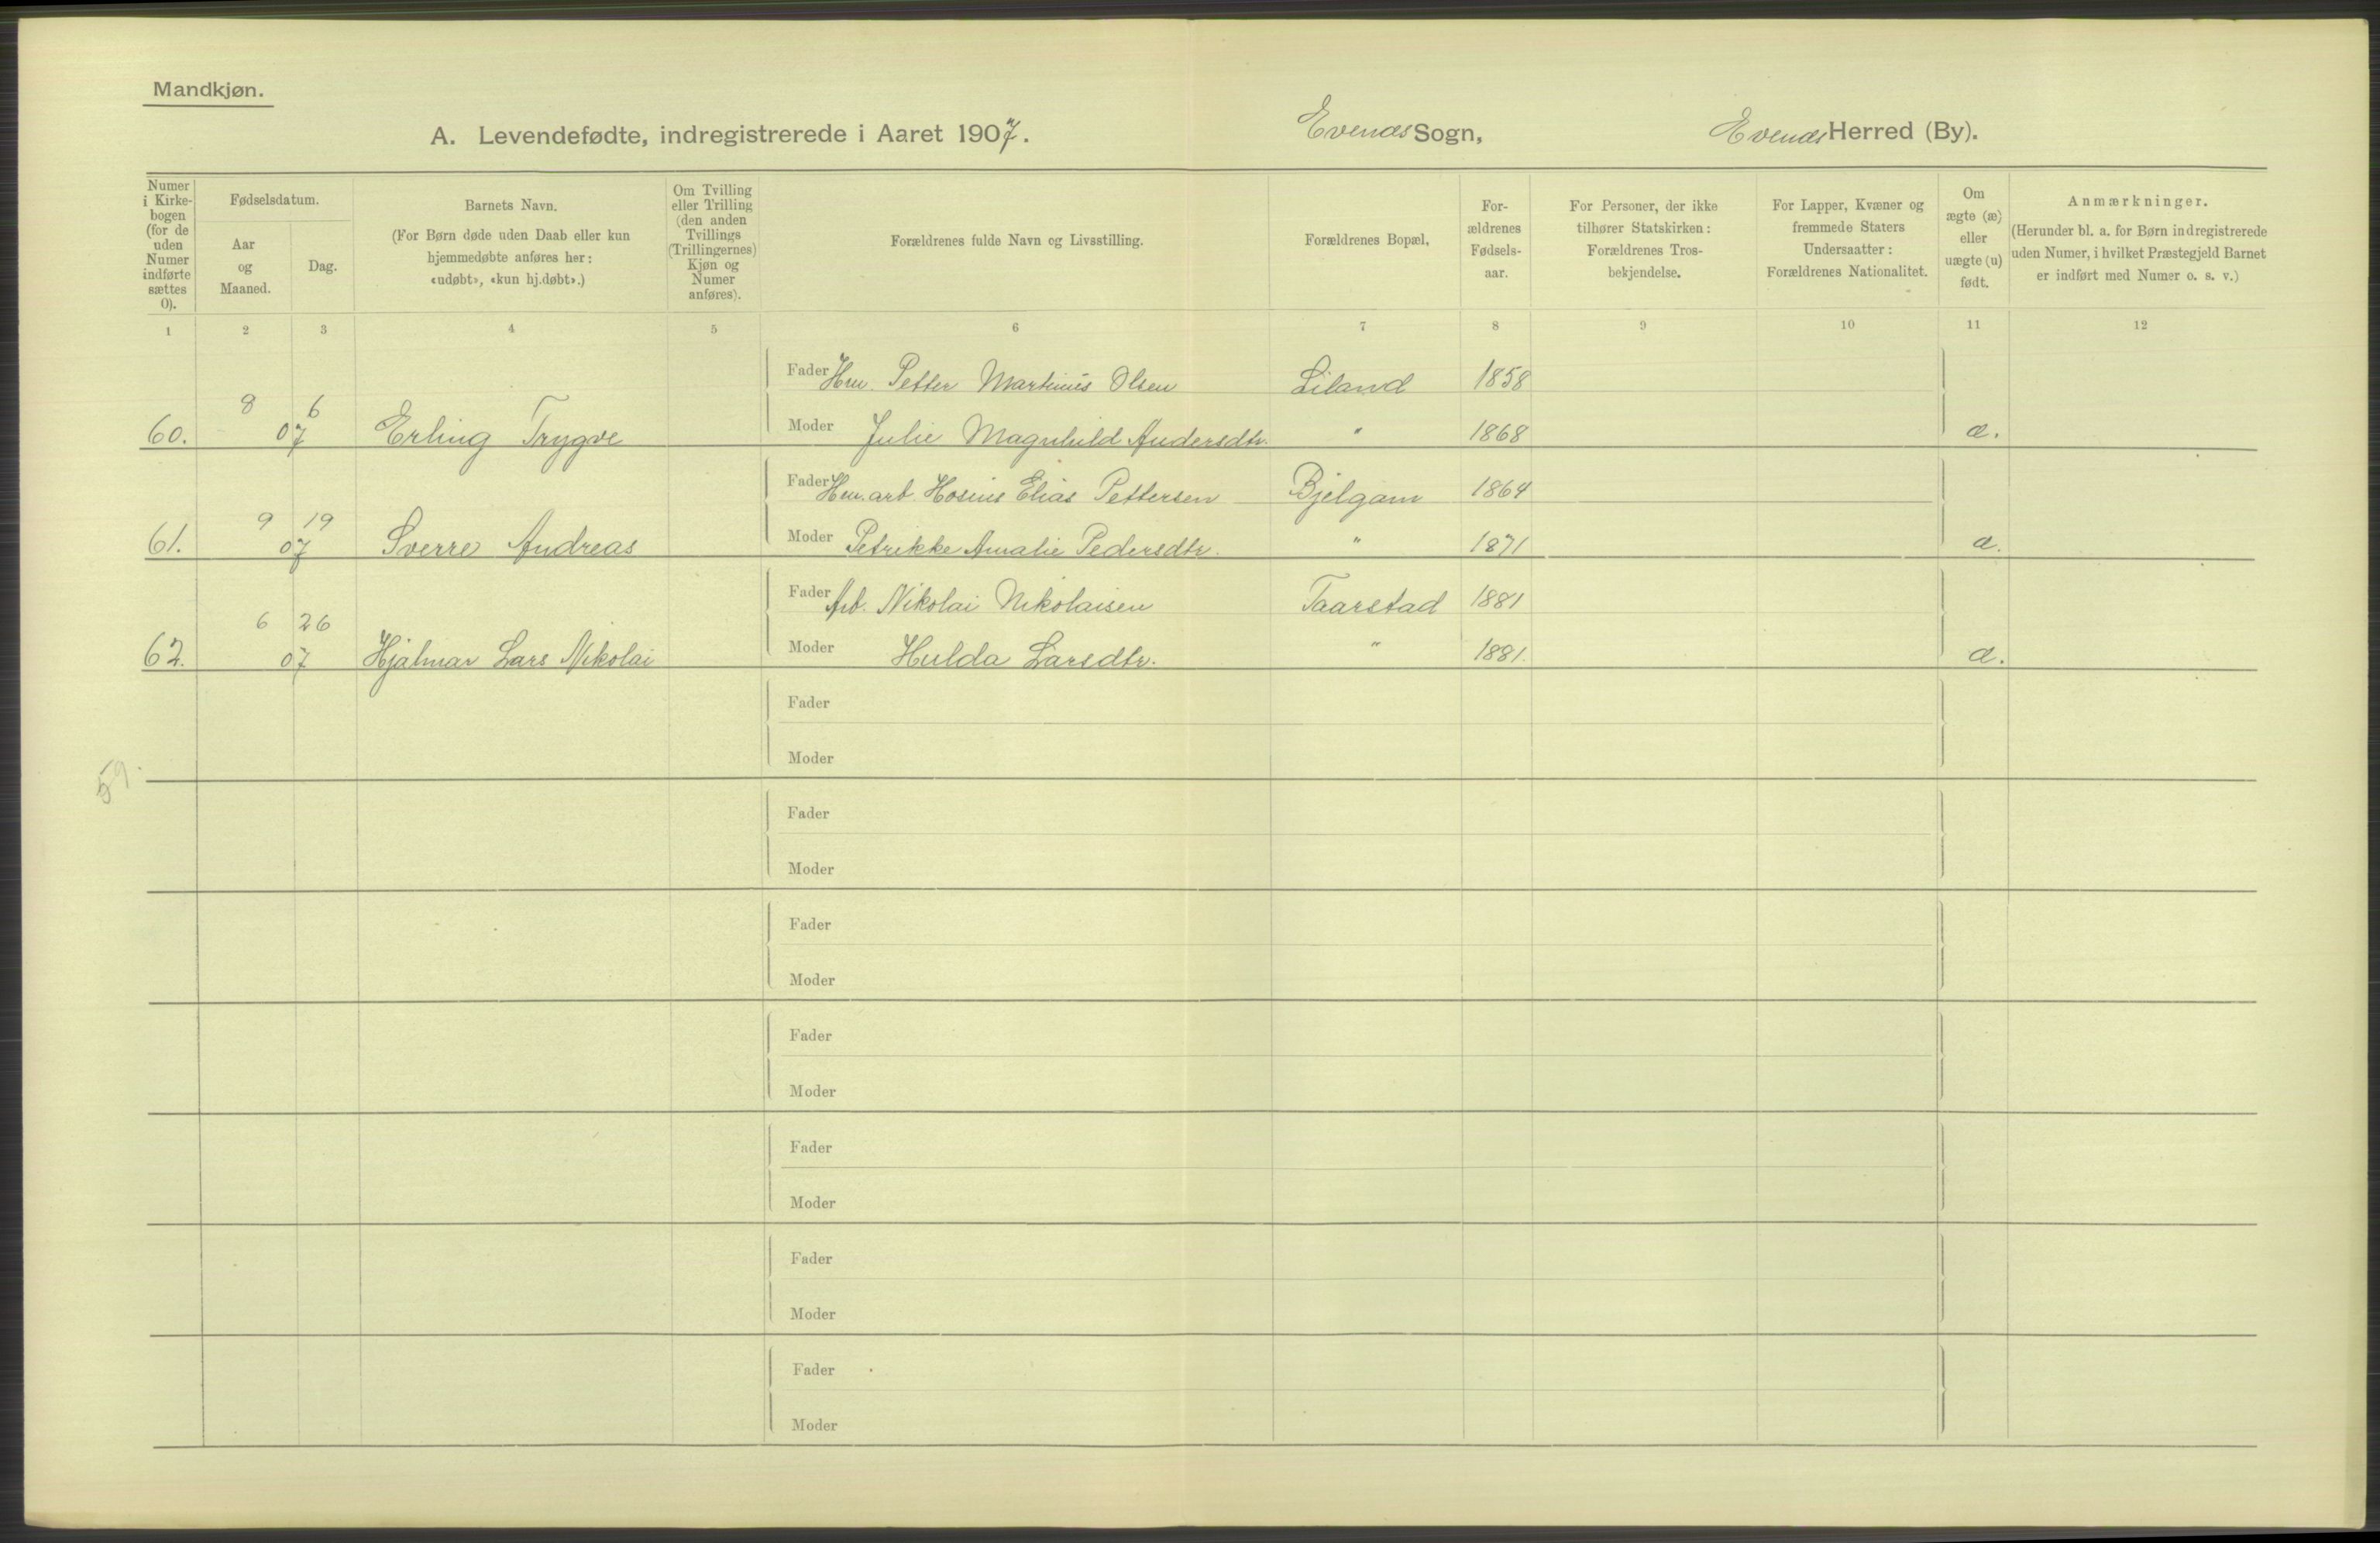 Mandkjøn.
A. Levendefødte, indregistrerede i Aaret 1907. Evenæs Sogn, Evenæs Herred (By).
Numer i Kirke-bogen (for de uden Numer indførte sættes 0).
Fødselsdatum.
Aar og Maaned.
Dag.
Barnets Navn.
(For Børn døde uden Daab eller kun
hjemmedøbte anføres her:
«udøbt», «kun hj.døbt».)
Om Tvilling
eller Trilling
(den anden
Tvillings
(Trillingernes)
Kjøn og
Numer
anføres).
Forældrenes fulde Navn og Livsstilling.
Forældrenes Bopæl.
For-
ældrenes
Fødsels-
aar.
For Personer, der ikke
tilhører Statskirken:
Forældrenes Tros-
bekjendelse.
For Lapper, Kvæner og
fremmede Staters
Undersaatter:
Forældrenes Nationalitet.
Om
ægte (æ)
eller
uægte (u)
født.
Anmærkninger.
(Herunder bl. a. for Børn indregistrerede
uden Numer, i hvilket Præstegjeld Barnet
er indført med Numer o. s. v.)
1 2 3 4 5 6 7 8 9 10 11 12
Fader Hm. Petter Martinus Olsen Liland 1858
8 6
60. 07 Erling Trygve Moder Julie Magnhild Andersdtr. " 1868 æ.
Fader Hm. arb. Hosius Elias Pettersen Bjelgam 1864
9 19
61. 07 Sverre Andreas Moder Petrikke Amalie Pedersdtr. " 1871 æ.
Fader Arb. Nikolai Nikolaisen Taarstad 1881
6 26
62. 07 Hjalmar Lars Nikolai Moder Hulda Larsdtr. " 1881. æ.
Fader
Moder
59.
Fader
Moder
Fader
Moder
Fader
Moder
Fader
Moder
Fader
Moder
Fader
Moder